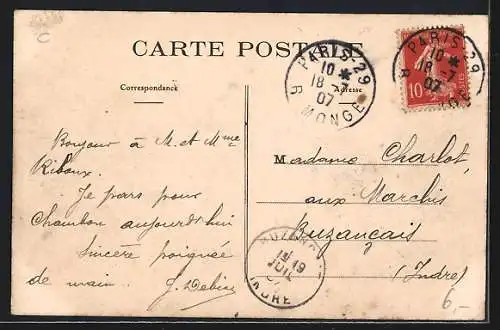 C
CARTE POSTALE
Correspondance
Adresse
PARIS-29
10 *
18 -7
07
R. MONGE
PARIS-29
10 *
18 -7
07
R. MONGE
10
Bonjour à M. et Mme
Riboux.
Je pars pour
Chambon aujourd'hui
Sincère poignée
de main.
Madame Charlot
aux Marchis
Buzançais
(Indre)
BUZANÇAIS
19
JUIL
INDRE
6,-